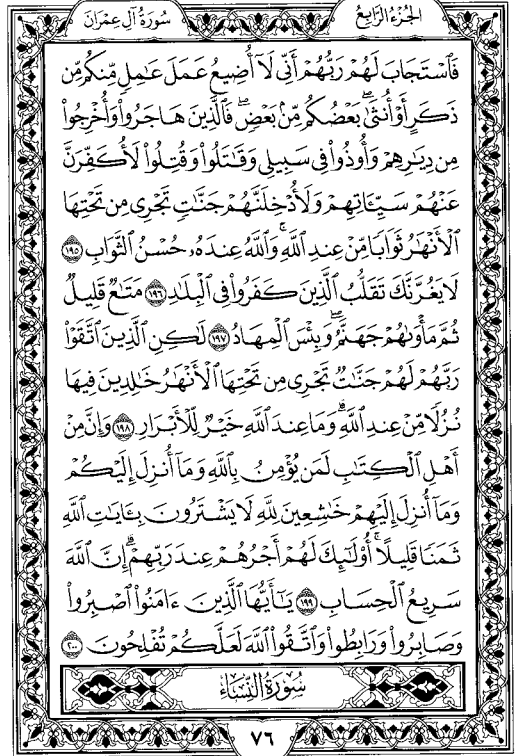 الجزء الرابع
سورة آل عمران
فَٱسْتَجَابَ لَهُمْ رَبُّهُمْ أَنِّى لَآ أُضِيعُ عَمَلَ عَٰمِلٍ مِّنكُم مِّن
ذَكَرٍ أَوْ أُنثَىٰ ۖ بَعْضُكُم مِّنۢ بَعْضٍ ۖ فَٱلَّذِينَ هَاجَرُوا۟ وَأُخْرِجُوا۟
مِن دِيَٰرِهِمْ وَأُوذُوا۟ فِى سَبِيلِى وَقَٰتَلُوا۟ وَقُتِلُوا۟ لَأُكَفِّرَنَّ
عَنْهُمْ سَيِّـَٔاتِهِمْ وَلَأُدْخِلَنَّهُمْ جَنَّٰتٍ تَجْرِى مِن تَحْتِهَا
ٱلْأَنْهَٰرُ ثَوَابًا مِّنْ عِندِ ٱللَّهِ ۗ وَٱللَّهُ عِندَهُۥ حُسْنُ ٱلثَّوَابِ ١٩٥
لَا يَغُرَّنَّكَ تَقَلُّبُ ٱلَّذِينَ كَفَرُوا۟ فِى ٱلْبِلَٰدِ ١٩٦ مَتَٰعٌ قَلِيلٌ
ثُمَّ مَأْوَىٰهُمْ جَهَنَّمُ ۚ وَبِئْسَ ٱلْمِهَادُ ١٩٧ لَٰكِنِ ٱلَّذِينَ ٱتَّقَوْا۟
رَبَّهُمْ لَهُمْ جَنَّٰتٌ تَجْرِى مِن تَحْتِهَا ٱلْأَنْهَٰرُ خَٰلِدِينَ فِيهَا
نُزُلًا مِّنْ عِندِ ٱللَّهِ ۗ وَمَا عِندَ ٱللَّهِ خَيْرٌ لِّلْأَبْرَارِ ١٩٨ وَإِنَّ مِنْ
أَهْلِ ٱلْكِتَٰبِ لَمَن يُؤْمِنُ بِٱللَّهِ وَمَآ أُنزِلَ إِلَيْكُمْ
وَمَآ أُنزِلَ إِلَيْهِمْ خَٰشِعِينَ لِلَّهِ لَا يَشْتَرُونَ بِـَٔايَٰتِ ٱللَّهِ
ثَمَنًا قَلِيلًا ۗ أُو۟لَٰٓئِكَ لَهُمْ أَجْرُهُمْ عِندَ رَبِّهِمْ ۗ إِنَّ ٱللَّهَ
سَرِيعُ ٱلْحِسَابِ ١٩٩ يَٰٓأَيُّهَا ٱلَّذِينَ ءَامَنُوا۟ ٱصْبِرُوا۟
وَصَابِرُوا۟ وَرَابِطُوا۟ وَٱتَّقُوا۟ ٱللَّهَ لَعَلَّكُمْ تُفْلِحُونَ ٢٠٠
سُورَةُ النِّسَاءِ
٧٦